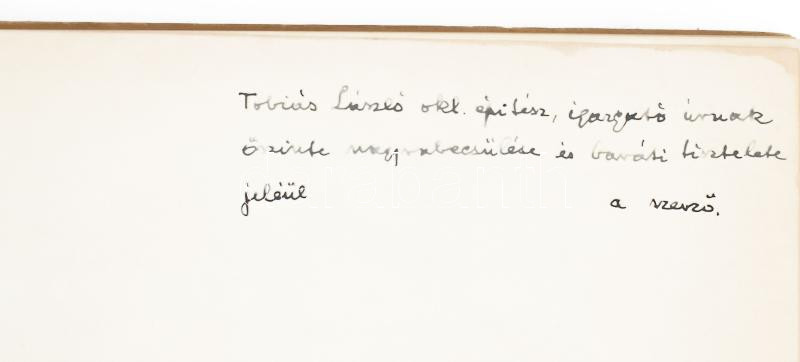 Tobiás László okl. építész, igazgató úrnak
őszinte nagyrabecsülése és baráti tisztelete
jeléül a szerző.